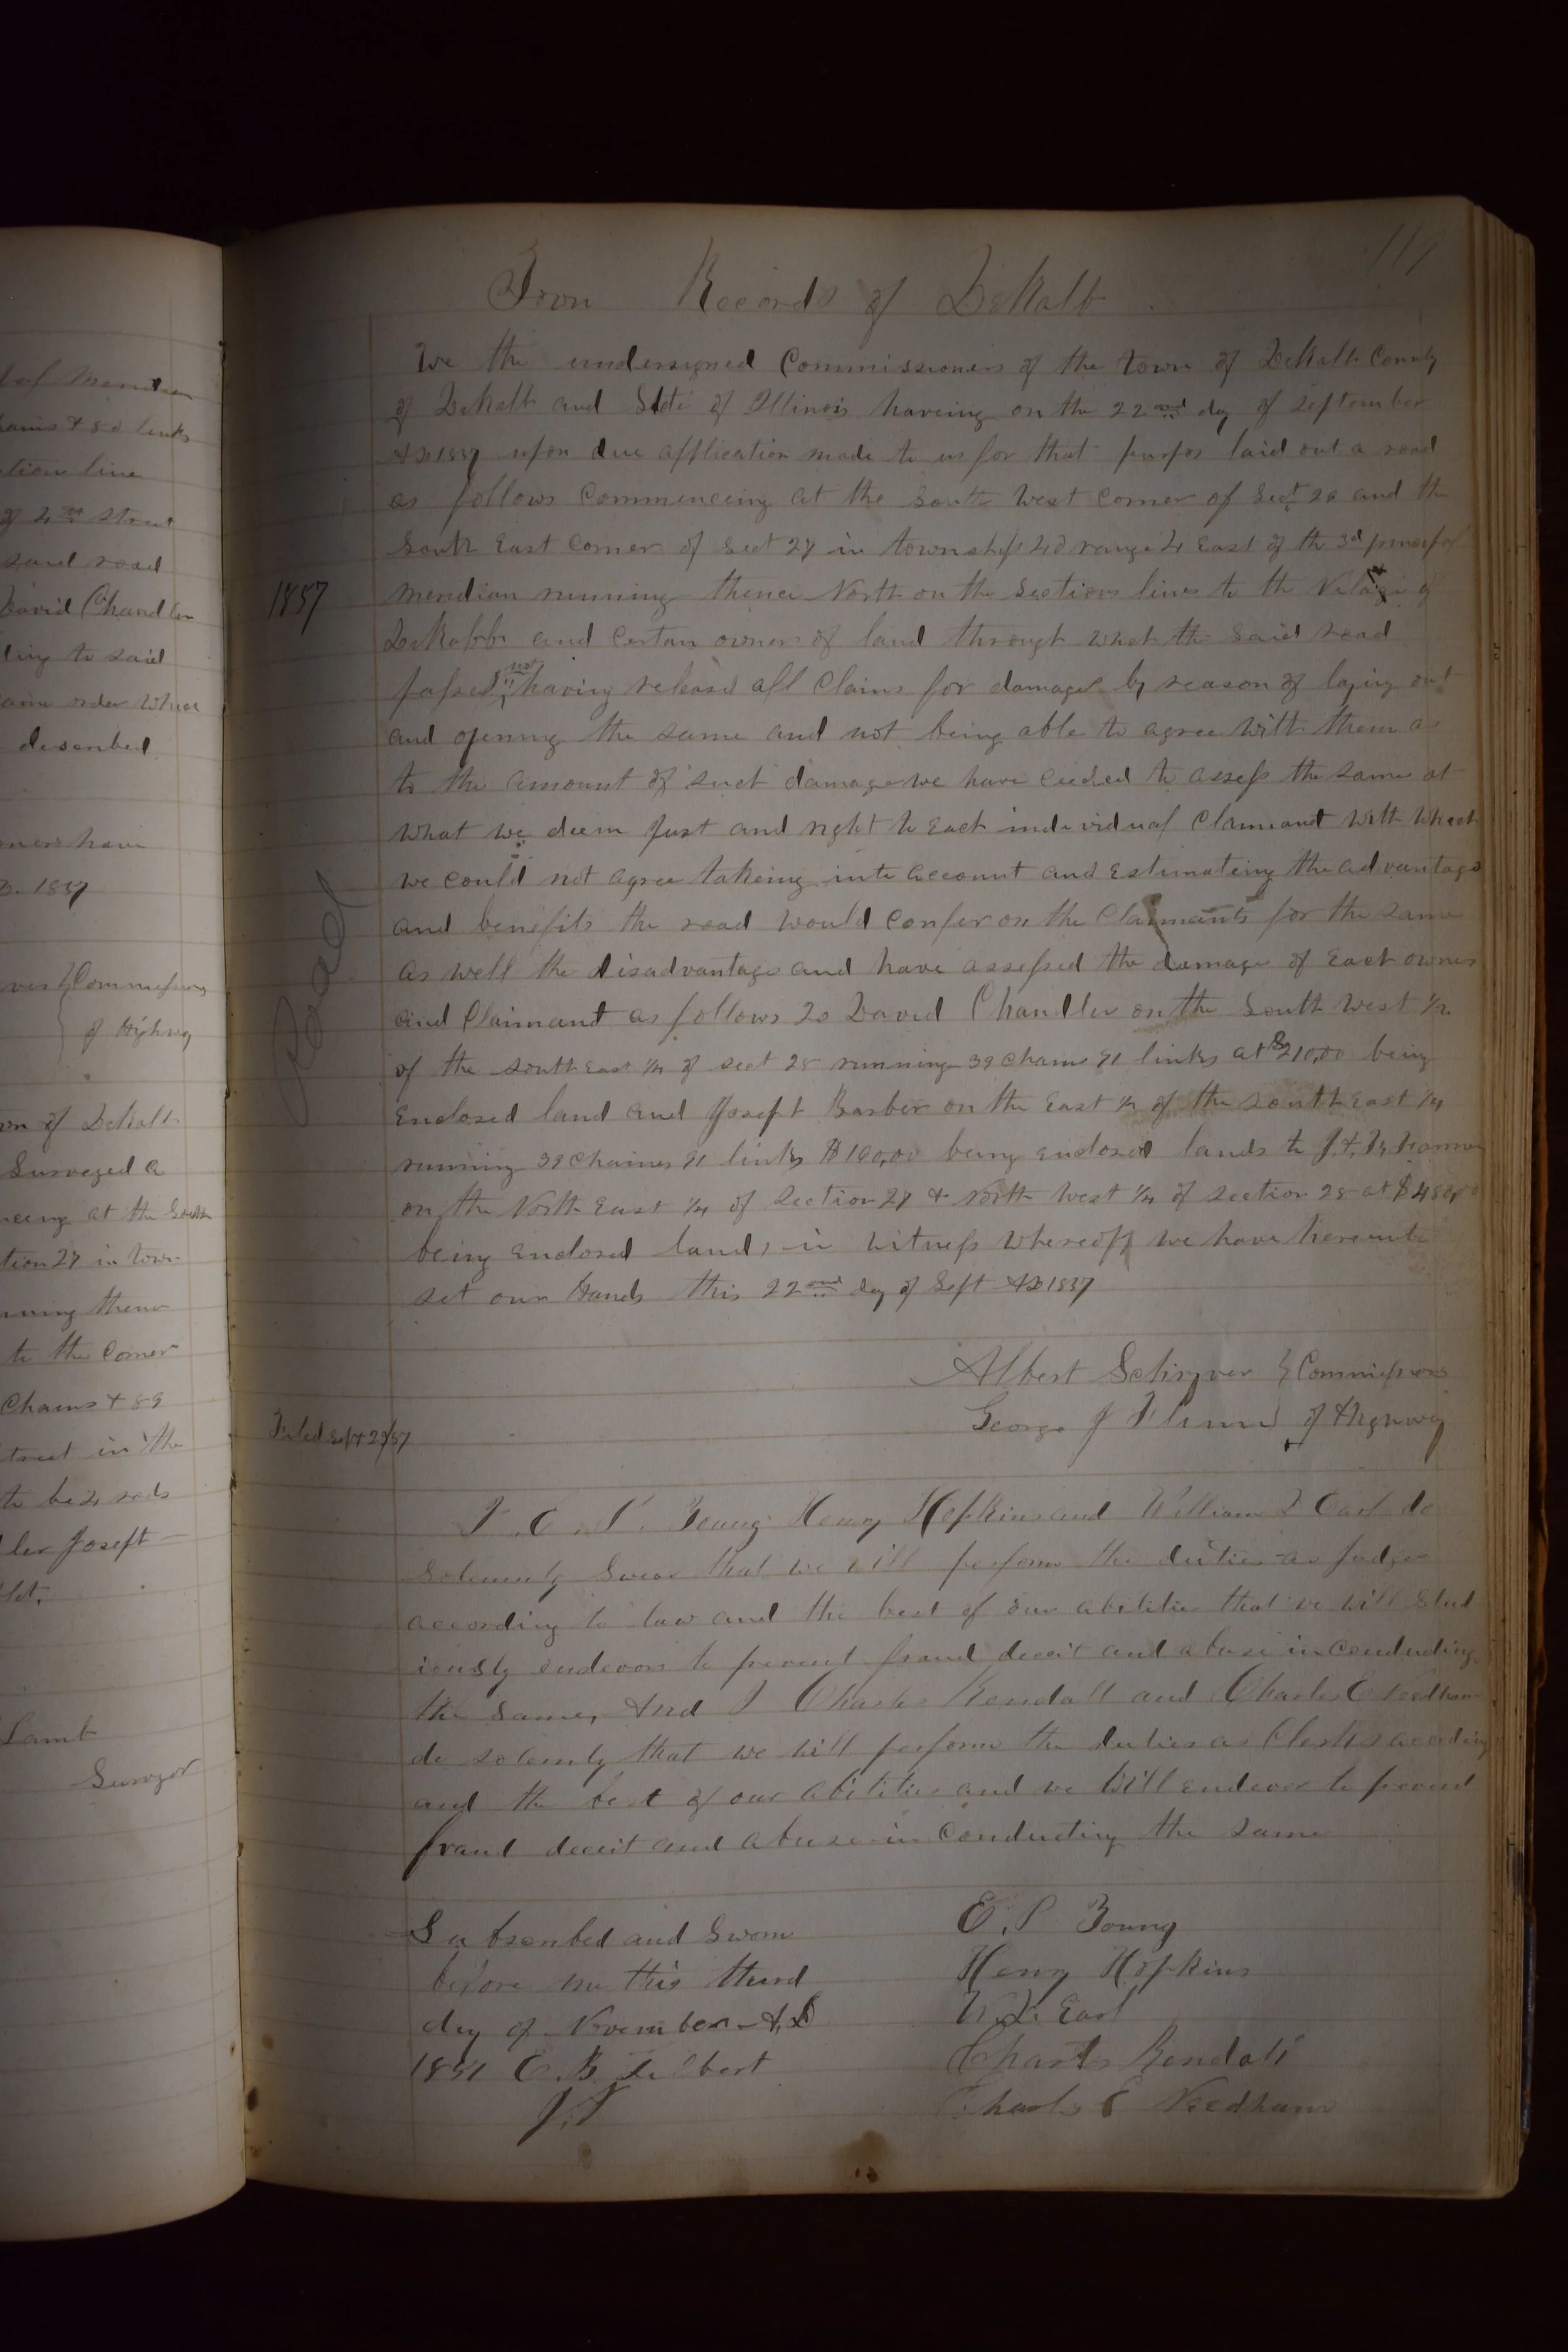 t of Meridian
hains & 80 links
ction line
of 4th street
said road
David Chandler
ding to said
same order which
described
ners have
D. 1857
vers } Commissions
} of Highway
wn of DeKalb
Surveyed a
ncing at the South
tion 27 in town
nning thence
to the Corner
Chains & 89
treet in the
to be 4 rods
ler Joseph
Lamb
Surveyor
117
Town Records of DeKalb
We the undersigned Commissioners of the town of DeKalb County
of DeKalb and State of Illinois haveing on the 22nd day of September
AD 1857 upon due application made to us for that purpos laid out a road
as follows Commenceing at the South West corner of Sect 26 and the
South East Corner of Sect 27 in township 40 range 4 East of the 3d principal
1857
meridian running thence North on the Section lines to the Village of
DeKalb and Certan owners of land through which the said road
passes not having released all Claims for damages by reason of laying out
and opening the same and not being able to agree with them as
to the amount of such damage we have ceeded to assess the same at
what we deem Just and right to Each individual Claimant with which
we could not agree takeing into account and Estimateing the advantage
and benefits the road would Confer on the Claimants for the same
as well the disadvantage and have assessed the damage of Each owner
Road
and Claimant as follows To David Chandler on the South West 1/4
of the south East 1/4 of sect 28 running 39 Chains 91 links at $210,00 being
Enclosed land and Joseph Barber on the East 1/2 of the south East 1/4
running 39 Chaines 91 links $100,00 being enclosed lands to J.
on the North East 1/4 of Section 27 & North West 1/4 of section 28 at
being Enclosed land, in witness whereoff we have hereunto
set our Hands this 22nd day of Sept AD 1857
Albert Schryver } Commissions
George J Flinn } of Highway
Filed Sept 29/57
I E. P. Young Henry Hopkins and William L Earl do
Solemnly Swear that we will perform the duties as Judge
according to law and the best of our abilities that we will Stud
iously endevors to prevent fraud deceit and abuse in Conducting
the same, And I Charles Kendall and Charles E Needham
do solemly that we will perform the duties as Clerks according
and the best of our abilities and we Will endever to prevent
fraud deceit and abuse in Conducting the same
Subscribed and Sworn
before me this third
day of November A.D
1857 E. B. Gilbert
J.P
E. P Young
Henry Hopkins
W. L. Earl
Charles Kendall
Charles E Needham